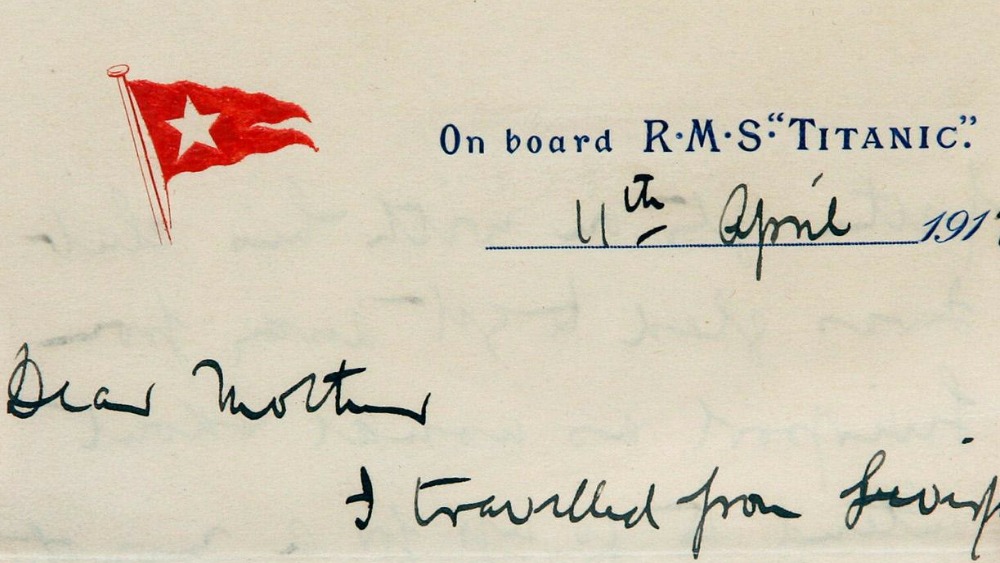 On board R·M·S. "TITANIC".
11th April 191
Dear Mother
I travelled from